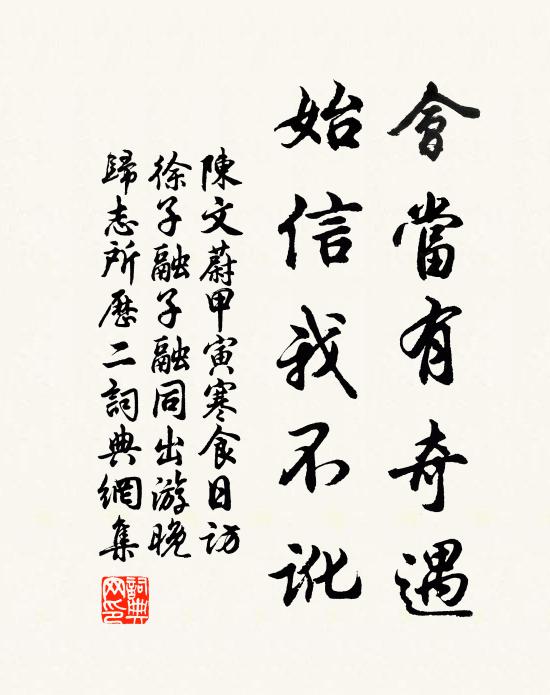 會當有奇遇
始信我不訛
陳文蔚甲寅寒食日訪
徐子融子融同出游晚
歸志所歷二詞典網集
詞典
网印